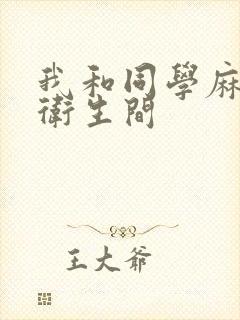 我和同學麻
衛生間
王大爺